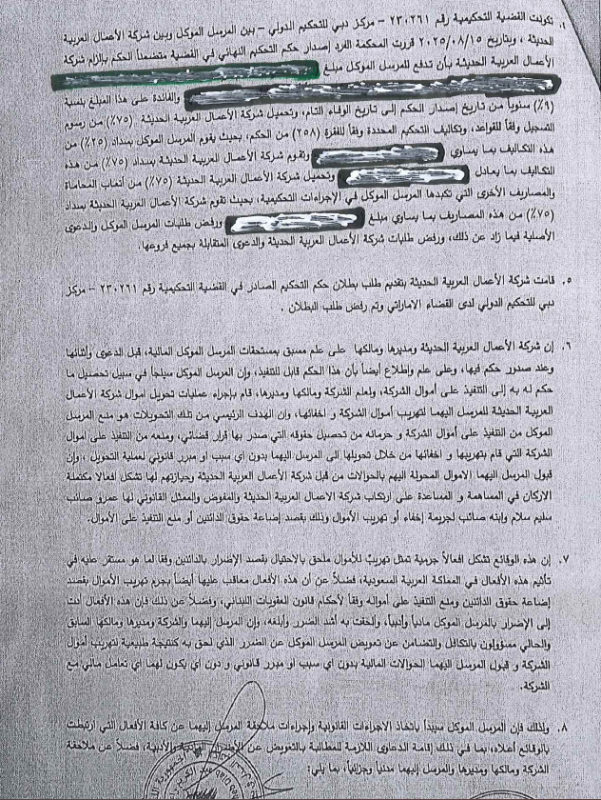 تكونت القضية التحكيمية رقم ٢٣٠٢٦١ – مركز دبي للتحكيم الدولي – بين المرسل الموكل وبين شركة الأعمال العربية
الحديثة ، وبتاريخ ٢٠٢٥/٠٨/١٥ قررت المحكمة الفرد إصدار حكم التحكيم النهائي في القضية متضمناً الحكم بإلزام شركة
الأعمال العربية الحديثة بأن تدفع للمرسل الموكل مبلغ
والفائدة على هذا المبلغ بنسبة
(٩٪) سنوياً من تاريخ إصدار الحكم إلى تاريخ الوفاء التام، وتحميل شركة الأعمال العربية الحديثة (٧٥٪) من رسوم
التسجيل وفقاً للقواعد، وتكاليف التحكيم المحددة وفقاً للفقرة (٢٥٨) من الحكم، بحيث يقوم المرسل الموكل بسداد (٢٥٪) من
هذه التكاليف بما يساوي وتقوم شركة الأعمال العربية الحديثة بسداد (٧٥٪) من هذه
التكاليف بما يعادل وتحميل شركة الأعمال العربية الحديثة (٧٥٪) من أتعاب المحاماة
والمصاريف الأخرى التي تكبدها المرسل الموكل في الإجراءات التحكيمية، بحيث تقوم شركة الأعمال العربية الحديثة بسداد
(٧٥٪) من هذه المصاريف بما يساوي مبلغ ورفض طلبات المرسل الموكل والدعوى
الأصلية فيما زاد عن ذلك، ورفض طلبات شركة الأعمال العربية الحديثة والدعوى المتقابلة بجميع فروعها.
٥. قامت شركة الأعمال العربية الحديثة بتقديم طلب بطلان حكم التحكيم الصادر في القضية التحكيمية رقم ٢٣٠٢٦١ – مركز
دبي للتحكيم الدولي لدى القضاء الاماراتي وتم رفض طلب البطلان .
٦. إن شركة الأعمال العربية الحديثة ومديرها ومالكها على علم مسبق بمستحقات المرسل الموكل المالية، قبل الدعوى وأثنائها
وعند صدور حكم فيها، وعلى علم وإطلاع أيضاً بأن هذا الحكم قابل للتنفيذ، وإن المرسل الموكل سيلجأ في سبيل تحصيل ما
حكم له به إلى التنفيذ على أموال الشركة، ولعلم الشركة ومالكها ومديرها، قام بإجراء عمليات تحويل اموال شركة الأعمال
العربية الحديثة للمرسل اليهما لتهريب أموال الشركة و اخفائها، وإن الهدف الرئيسي من تلك التحويلات هو منع المرسل
الموكل من التنفيذ على أموال الشركة و حرمانه من تحصيل حقوقه التي صدر بها قرار قضائي، ومنعه من التنفيذ على اموال
الشركة التي قام بتهريبها و اخفائها من خلال تحويلها الى المرسل اليهما بدون اي سبب او مبرر قانوني لعملية التحويل ، وإن
قبول المرسل اليهما الاموال المحولة اليهم بالحوالات من قبل شركة الأعمال العربية الحديثة وحيازتهم لها تشكل افعالا مكتملة
الاركان في المساهمة و المساعدة على ارتكاب شركة الاعمال العربية الحديثة والمفوض والممثل القانوني لها عمرو صائب
سليم سلام وابنه صائب لجريمة إخفاء أو تهريب الأموال وذلك بقصد إضاعة حقوق الدائنين أو منع التنفيذ على الأموال.
٧. إن هذه الوقائع تشكل افعالاً جرمية تمثل تهريبٌ للأموال ملحق بالاحتيال بقصد الإضرار بالدائنين وفقا لما هو مستقر عليه في
تأثيم هذه الأفعال في المملكة العربية السعودية، فضلاً عن أن هذه الأفعال معاقب عليها أيضاً بجرم تهريب الأموال بقصد
إضاعة حقوق الدائنين ومنع التنفيذ على أمواله وفقاً لأحكام قانون العقوبات اللبناني، وفضلاً عن ذلك فإن هذه الأفعال أدت
إلى الإضرار بالمرسل الموكل مادياً وأدبياً، وألحقت به أشد الضرر وأبلغه، وإن المرسل إليهما والشركة ومديرها ومالكها السابق
والحالي مسؤولون بالتكافل والتضامن عن تعويض المرسل الموكل عن الضرر الذي لحق به كنتيجة طبيعية لتهريب أموال
الشركة و قبول المرسل اليهما الحوالات المالية بدون اي سبب او مبرر قانوني و دون أي يكون لهما اي تعامل مالي مع
الشركة.
٨. ولذلك فإن المرسل الموكل سيبدأ باتخاذ الاجراءات القانونية وإجراءات ملاحقة المرسل إليهما عن كافة الأفعال التي ارتبطت
بالوقائع أعلاه، بما في ذلك إقامة الدعاوى اللازمة للمطالبة بالتعويض عن الأضرار المادية والأدبية، فضلاً عن ملاحقة
الشركة ومالكها ومديرها والمرسل إليهما مدنياً وجزائياً، بما يلي: